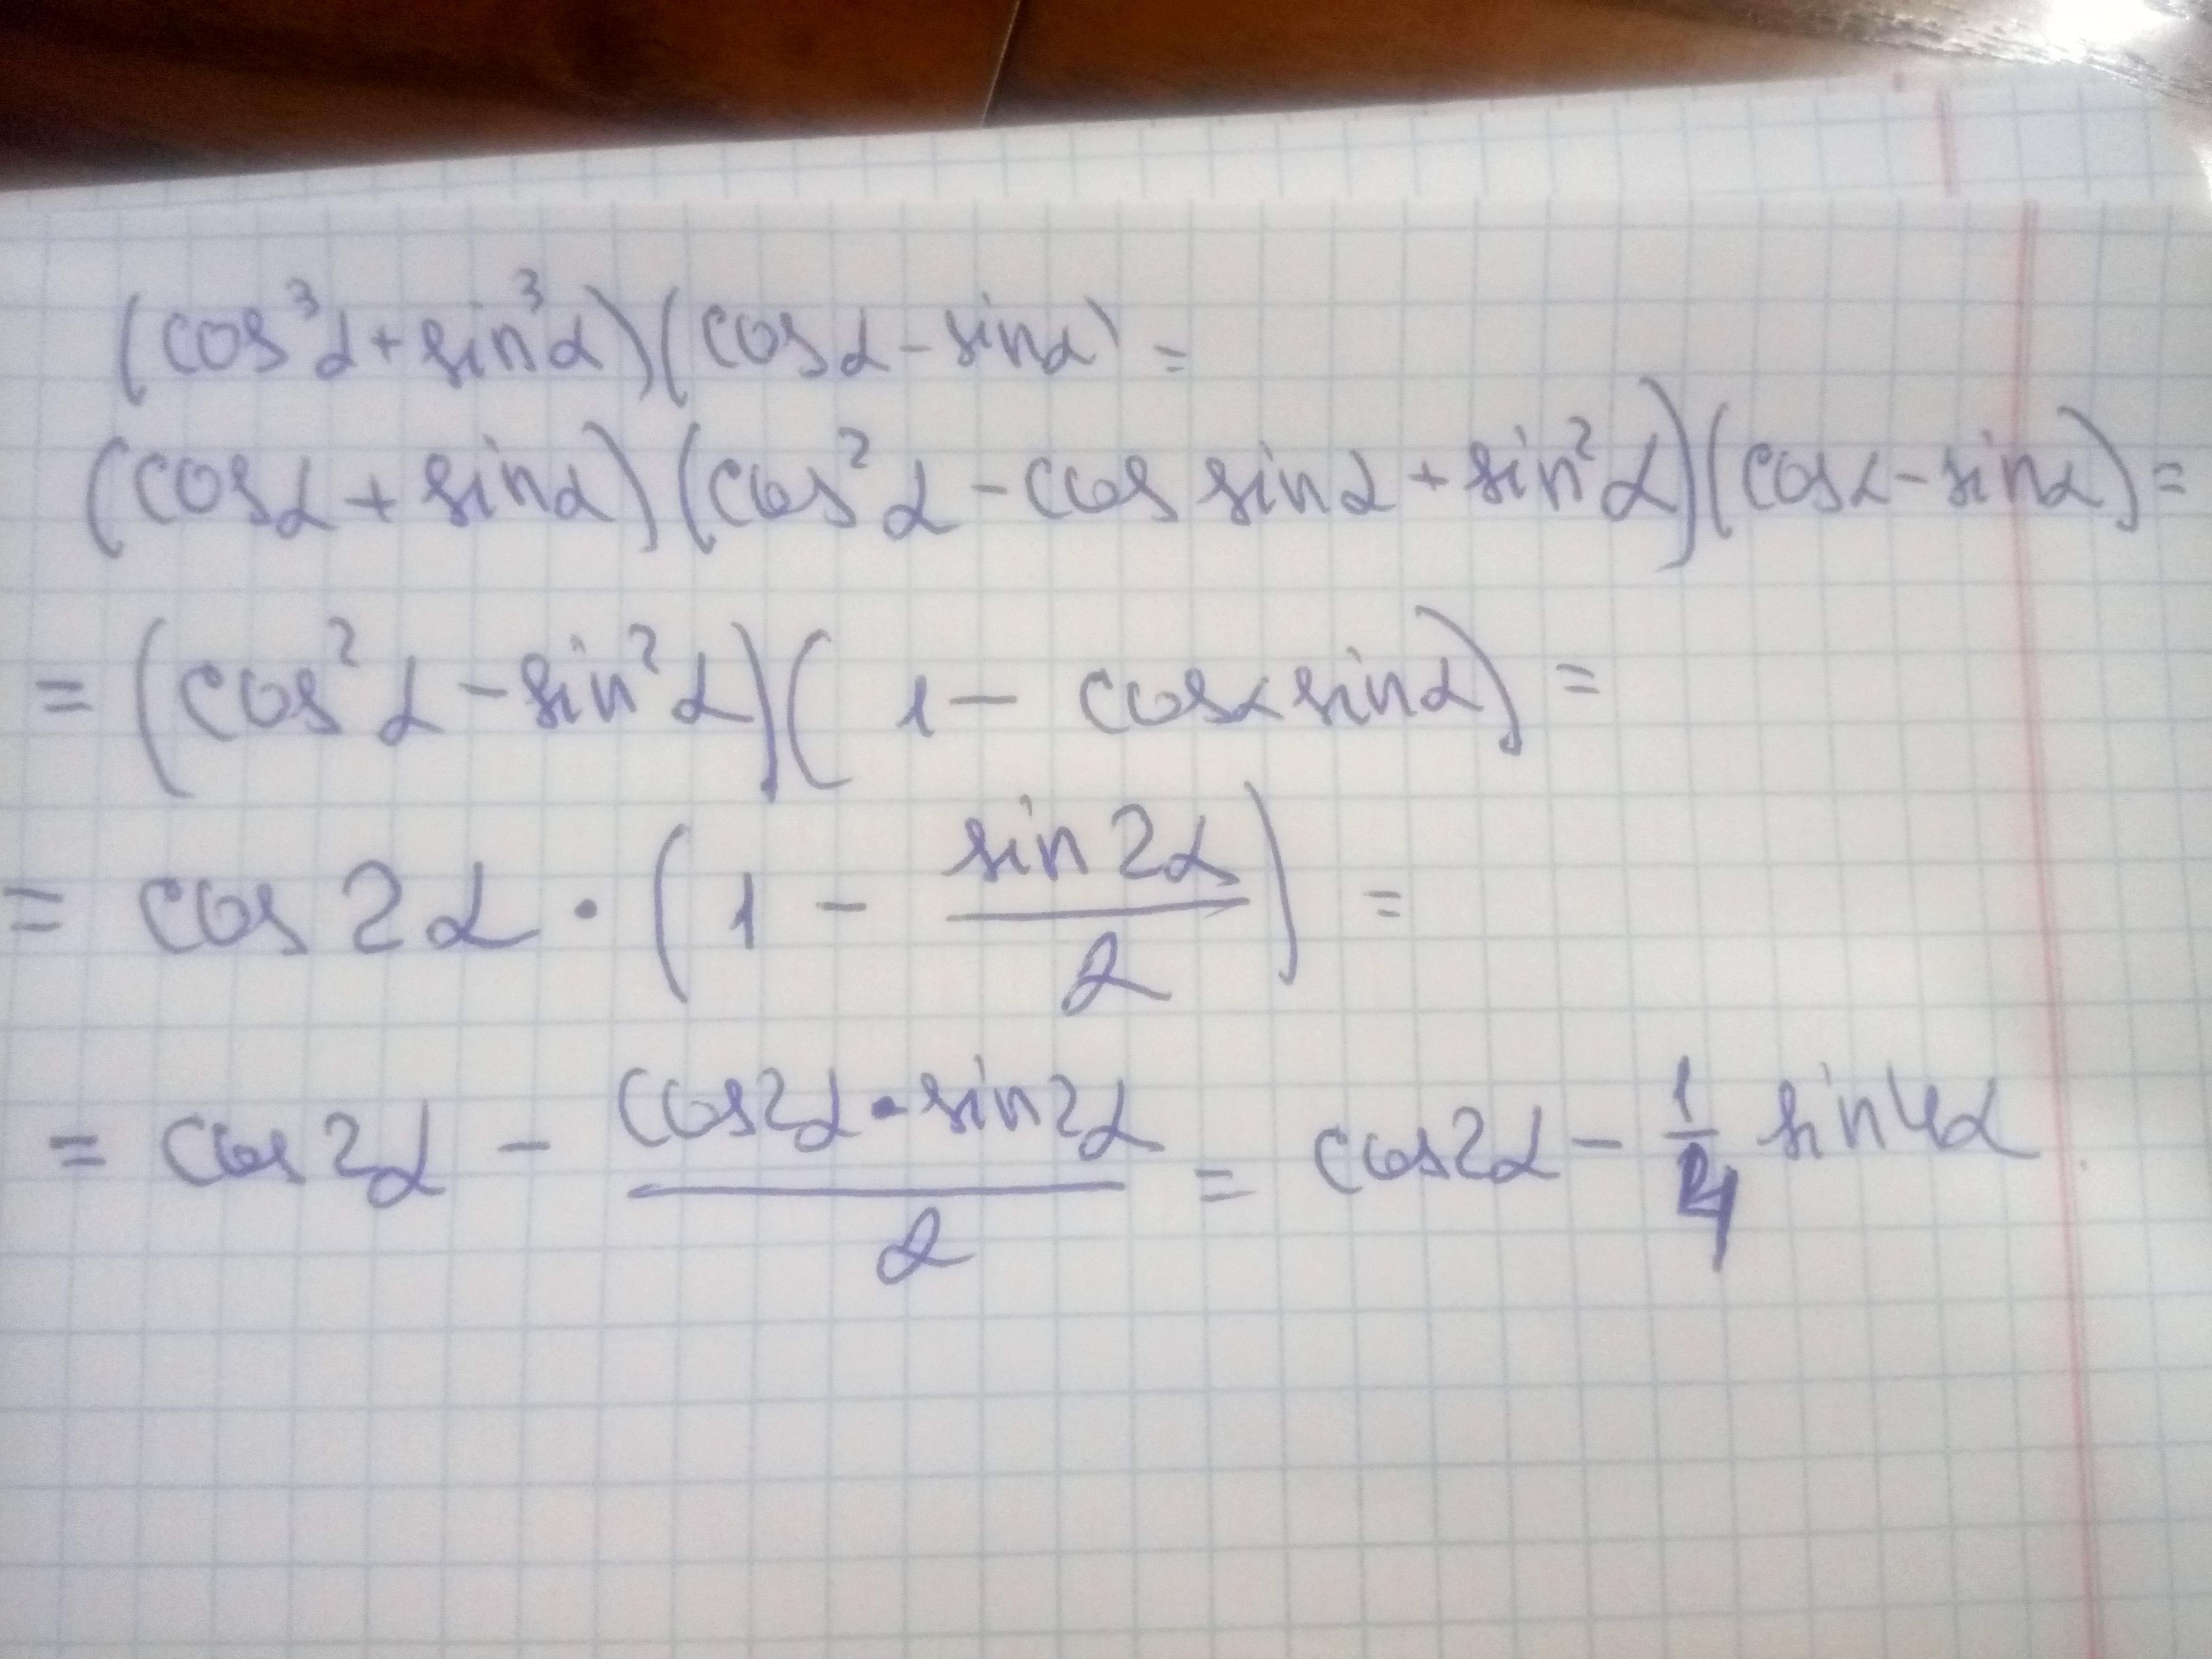 (cos³α + sin³α)(cosα - sinα) =
(cosα + sinα)(cos²α - cos sinα + sin²α)(cosα - sinα) =
= (cos²α - sin²α)(1 - cosα sinα) =
= cos 2α · (1 - sin 2α / 2) =
= cos 2α - cos2α · sin2α / 2 = cos2α - 1/4 sin4α